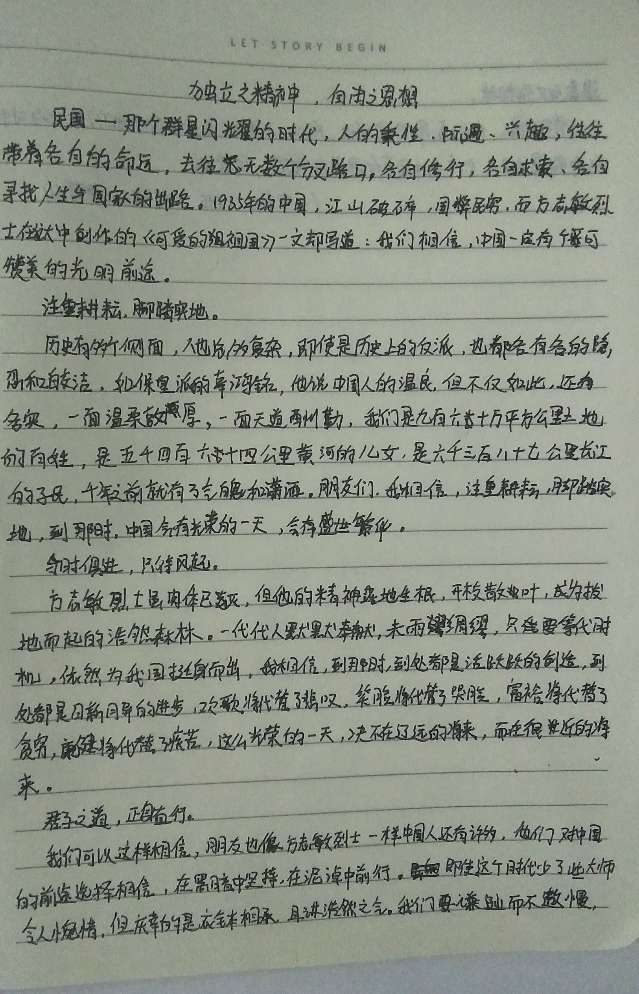 LET STORY BEGIN
为独立之精神，自由之思想
民国一那个群星闪耀的时代，人的秉性、际遇、兴趣，往往
带着各自的命运，去往无数个分叉路口，各自修行，各自求索、各自
寻找人生与国家的出路。1935年的中国，江山破碎，国弊民穷，而方志敏烈
士在狱中创作的《可爱的祖国》一文却写道：我们相信，中国一定有个可
赞美的光明前途。
注重耕耘，脚踏实地。
历史有多个侧面，人也多复杂，即使是历史上的反派，也都各有各的隐
和，如保皇派的辜鸿铭，他说中国人的温良，但不仅如此，还有
，一面温柔敦厚，一面天道酬勤，我们是九百六十万平方公里土地
的百姓，是五千四百六十四公里黄河的儿女，是六千三百八十七公里长江
的子民，千年之前就有了和潇洒。朋友们，我相信，注重耕耘，脚踏实
地，到那时，中国会有光荣的一天，会有盛世繁华。
与时俱进，只待风起。
方志敏烈士虽肉体已死，但他的精神落地生根，开枝散叶，成为拔
地而起的浩然森林。一代代人默默奉献，未雨绸缪，只需要等代时
机，依然为我国挺身而出，我相信，到那时，到处都是活跃跃的创造，到
处都是日新月异的进步，欢歌将代替了悲叹，笑脸将代替了哭脸，富裕将代替了
贫穷，康健将代替了疾苦，这么光荣的一天，决不在辽远的将来，而在很近的将
来。
君子之道，正自直行。
我们可以这样相信，朋友也像方志敏烈士一样中国人还有许多，他们对中国
的前途选择相信，在黑暗中坚持，在泥淖中前行。即使这个时代少了些大师
令人惋惜，但庆幸的是衣钵相承，且讲浩然之气。我们要谦虚而不傲慢，